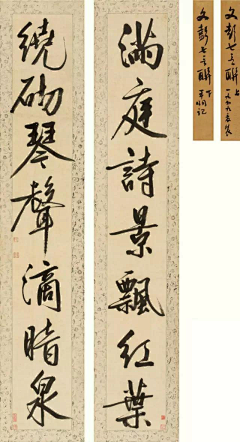 滿庭詩景飄紅葉
繞砌琴聲滴暗泉
文彭七言聯 上
文彭七言聯 下